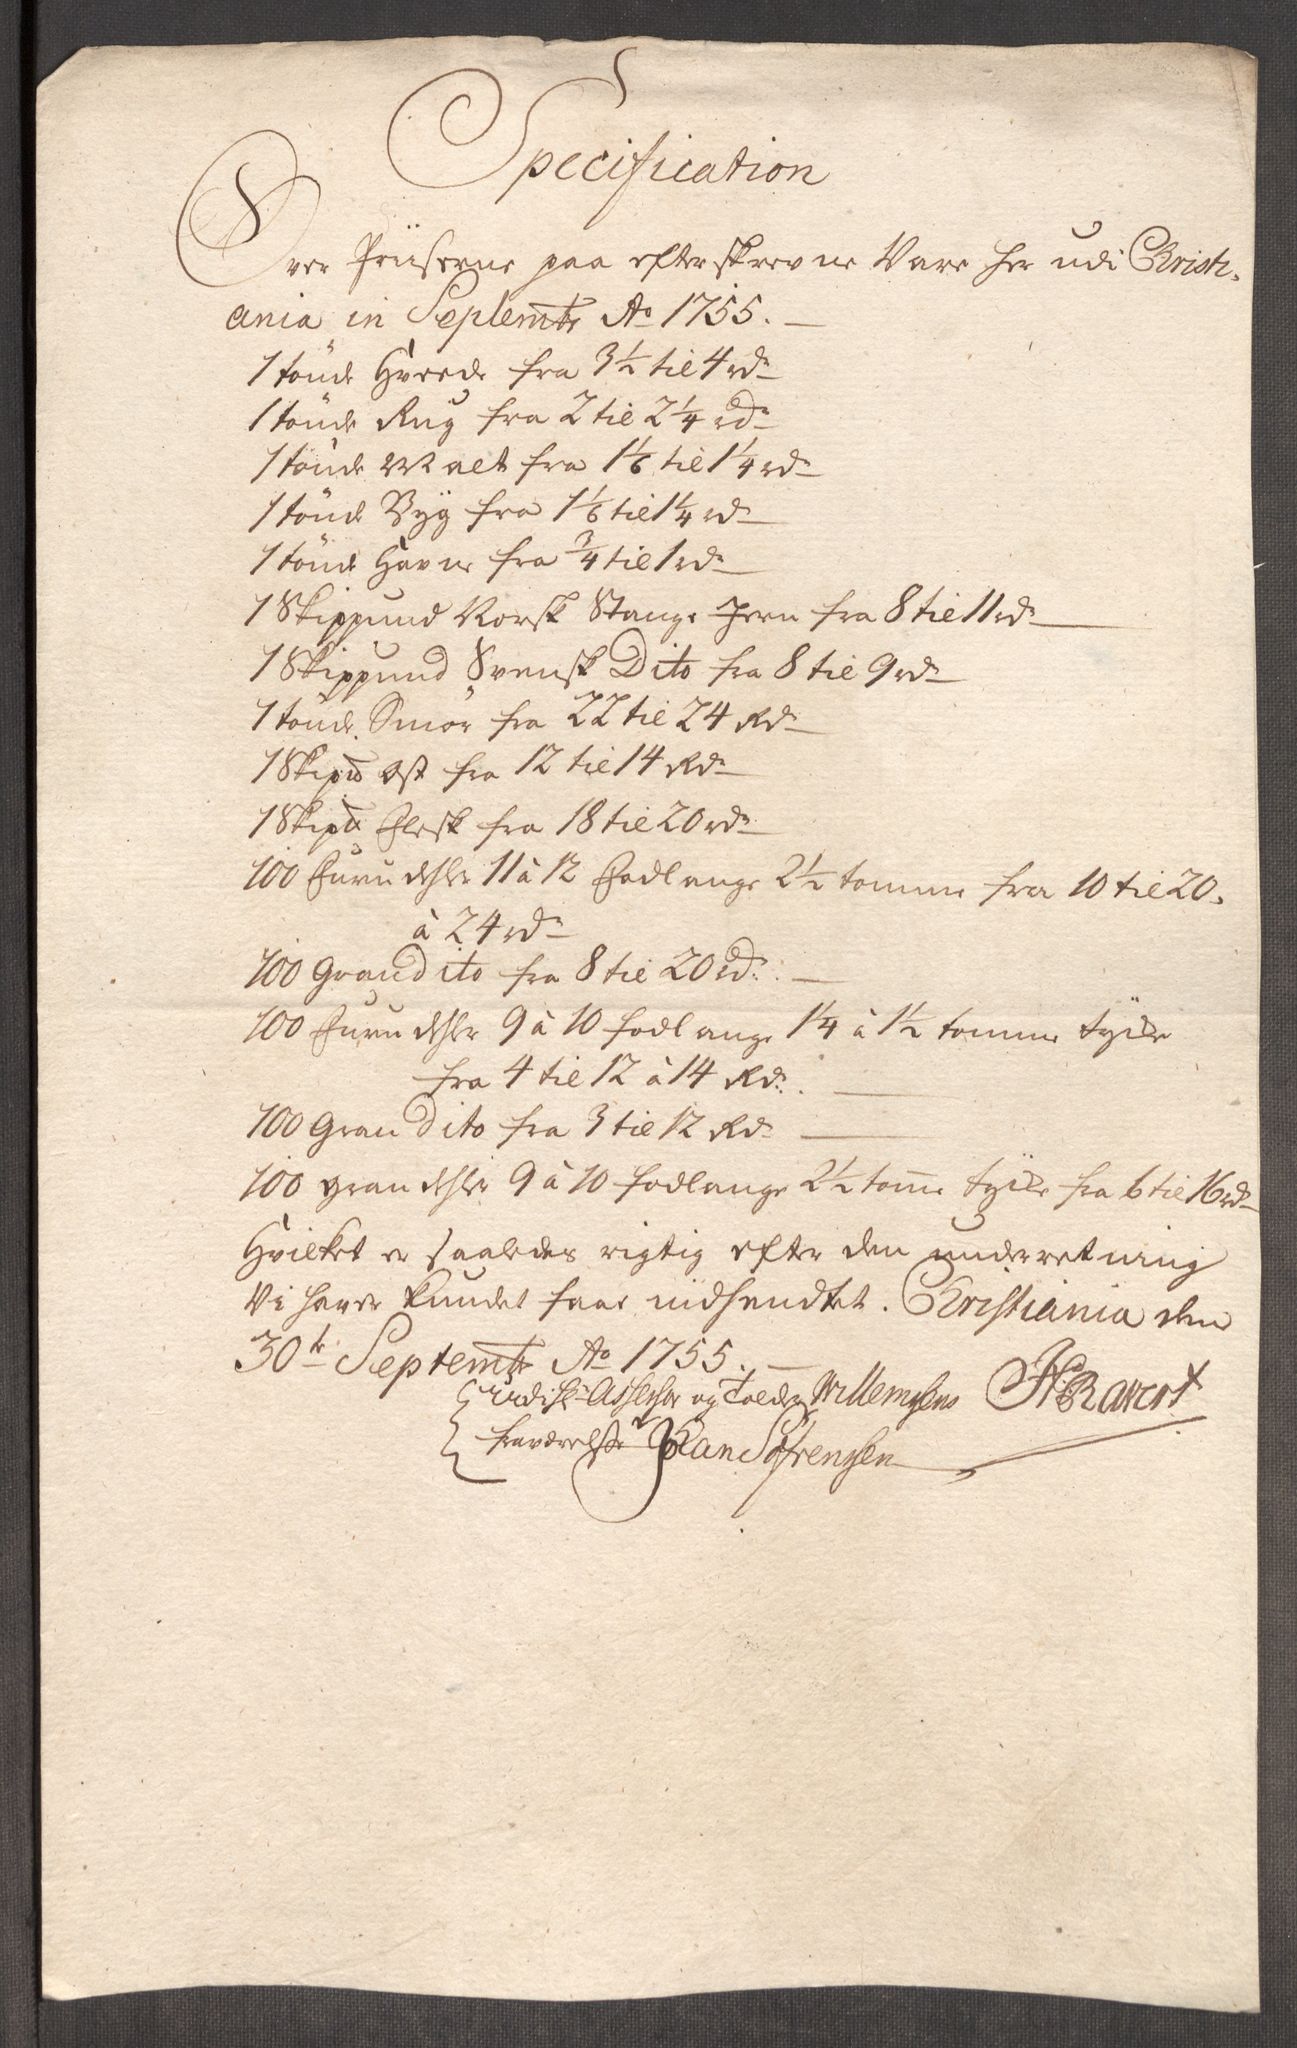 Specification
Over Priiserne paa efterskrevne Vare her udi Christi-
ania in Septembr Ao 1755.
1 tönde Hvede fra 3½ til 4 rdr
1 tönde Rug fra 2 til 2¼ rdr
1 tönde Malt fra 1⅙ til 1¼ rdr
1 tönde Byg fra 1⅙ til 1¼ rdr
1 tönde Havre fra ¾ til 1 rdr
1 Skippund Norsk Stange Jern fra 8 til 11 rdr
1 Skippund Svensk Dito fra 8 til 9 rdr
1 tönde Smör fra 22 til 24 Rdr
1 Skipd Ost fra 12 til 14 Rdr
1 Skipd Flesk fra 18 til 20 rdr
100 Furu dehler 11 à 12 Fodlange 2½ tomme fra 10 til 20.
à 24 rdr
100 Gran dito fra 8 til 20 rdr.
100 Furu dehler 9 à 10 fodlange 1¼ à 1½ tomme tycke
fra 4 til 12 à 14 Rdr.
100 Gran Dito fra 3 til 12 Rdr
100 gran dehler 9 à 10 fodlange 2½ tome tycke fra 6 til 16 rdr
Hvilket er saaledes rigtig efter den underretning
Vi haver kundet faae indhendtet. Christiania den
30te Septembr Ao 1755.
Assessor og Tolder Willemsens
fraværelse Johan Sørensen